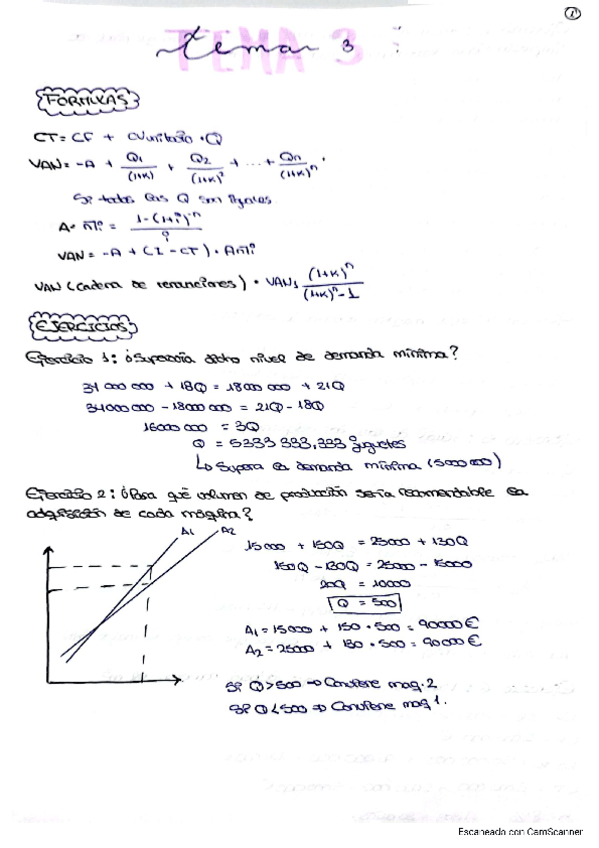 1
tema 3
TEMA 3
FORMULAS
CT = CF + CVunitario · Q
VAN = -A + Q1/(1+K) + Q2/(1+K)² + ... + Qn/(1+K)ⁿ
Si todos los Q son iguales
A n̄ i = 1-(1+i)⁻ⁿ / i
VAN = -A + (I - CT) · A n̄ i
VAN (cadena de renovaciones) = VAN1 (1+K)ⁿ/(1+K)ⁿ-1
EJERCICIOS
Ejercicio 1: ¿Superaría dicho nivel de demanda mínima?
34 000 000 + 18Q = 18 000 000 + 21Q
34000 000 - 18000 000 = 21Q - 18Q
16000 000 = 3Q
Q = 5333 333,333 juguetes
↳ Supera la demanda mínima (5000 000)
Ejercicio 2: ¿Para qué volumen de producción sería recomendable la
adquisición de cada máquina?
A1 A2
15000 + 150Q = 25000 + 130Q
150Q - 130Q = 25000 - 15000
20Q = 10000
Q = 500
A1 = 15000 + 150 · 500 = 90000 €
A2 = 25000 + 130 · 500 = 90000 €
Si Q > 500 → Conviene maq. 2
Si Q < 500 → Conviene maq 1.
Escaneado con CamScanner